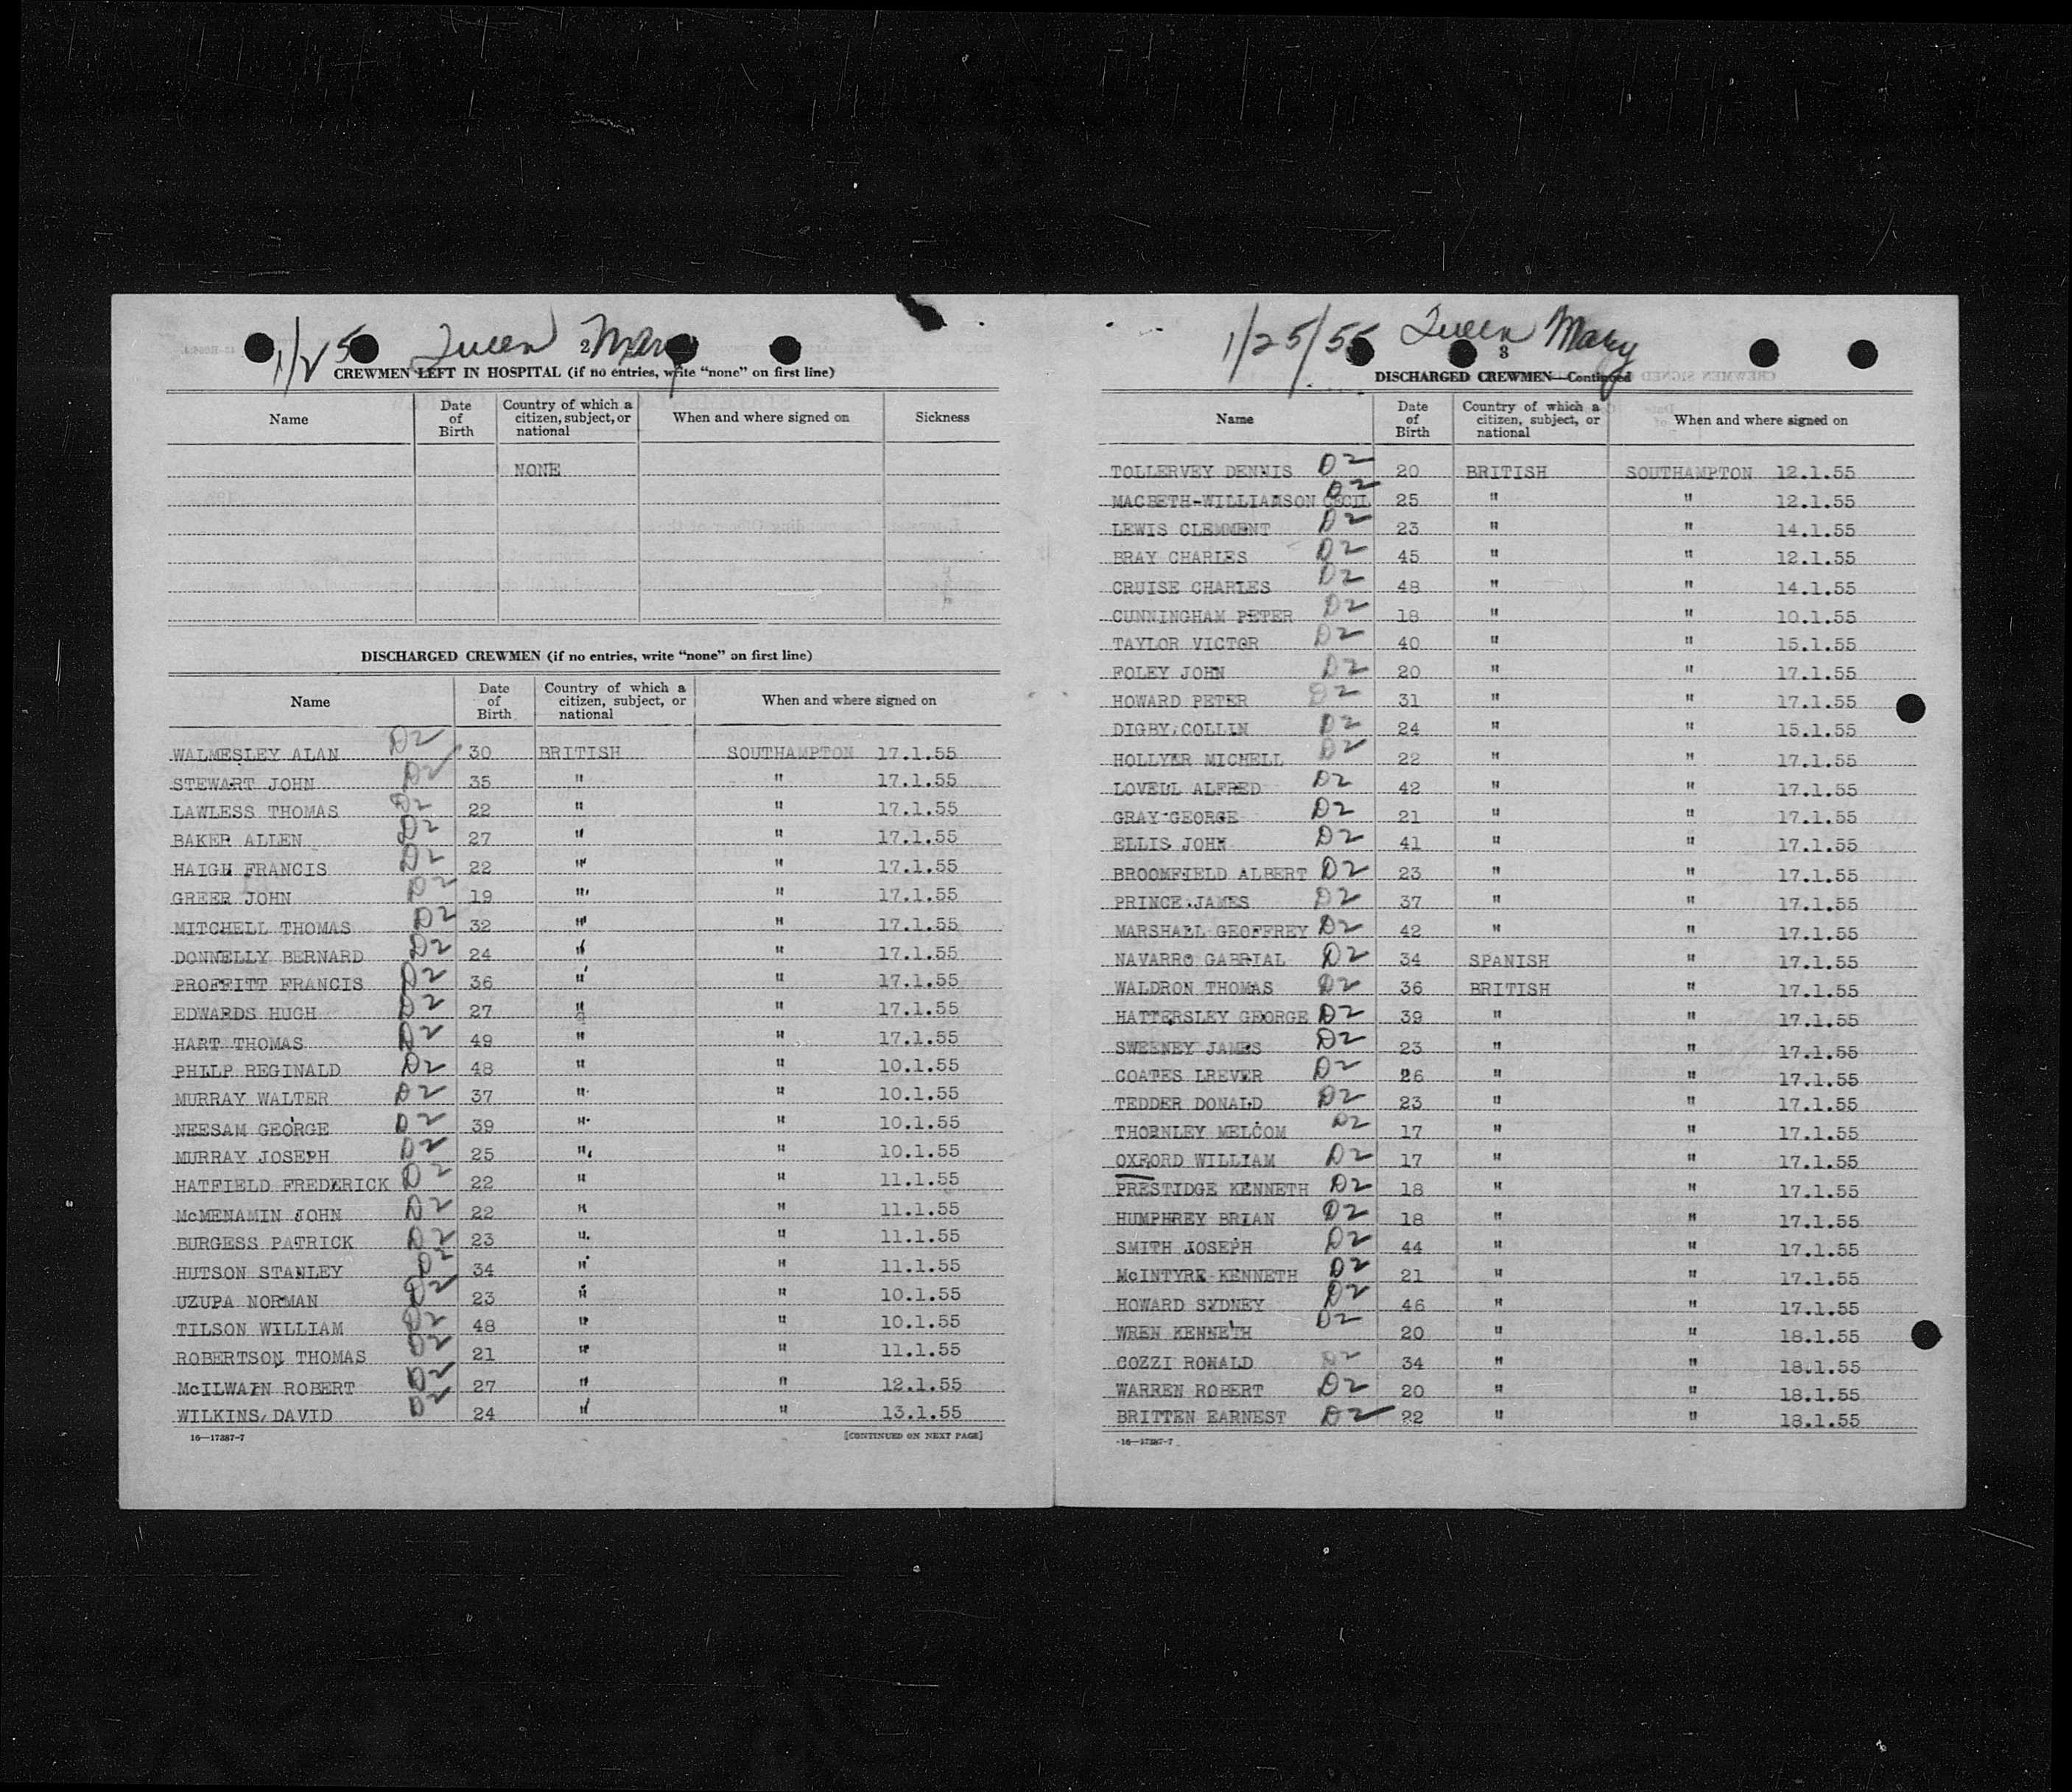 1/25 Queen Mary
2
CREWMEN LEFT IN HOSPITAL (if no entries, write "none" on first line)
Name Date of Birth Country of which a citizen, subject, or national When and where signed on Sickness
NONE
DISCHARGED CREWMEN (if no entries, write "none" on first line)
Name Date of Birth Country of which a citizen, subject, or national When and where signed on
WALMESLEY ALAN D2 30 BRITISH SOUTHAMPTON 17.1.55
STEWART JOHN D2 35 " " 17.1.55
LAWLESS THOMAS D2 22 " " 17.1.55
BAKER ALLEN D2 27 " " 17.1.55
HAIGH FRANCIS D2 22 " " 17.1.55
GREER JOHN D2 19 " " 17.1.55
MITCHELL THOMAS D2 32 " " 17.1.55
DONNELLY BERNARD D2 24 " " 17.1.55
PROFFITT FRANCIS D2 36 " " 17.1.55
EDWARDS HUGH D2 27 " " 17.1.55
HART THOMAS D2 49 " " 17.1.55
PHILP REGINALD D2 48 " " 10.1.55
MURRAY WALTER D2 37 " " 10.1.55
NEESAM GEORGE D2 39 " " 10.1.55
MURRAY JOSEPH D2 25 " " 10.1.55
HATFIELD FREDERICK D2 22 " " 11.1.55
McMENAMIN JOHN D2 22 " " 11.1.55
BURGESS PATRICK D2 23 " " 11.1.55
HUTSON STANLEY D2 34 " " 11.1.55
UZUPA NORMAN D2 23 " " 10.1.55
TILSON WILLIAM D2 48 " " 10.1.55
ROBERTSON THOMAS D2 21 " " 11.1.55
McILWAIN ROBERT D2 27 " " 12.1.55
WILKINS DAVID D2 24 " " 13.1.55
16—17387-7 [CONTINUED ON NEXT PAGE]
1/25/55 Queen Mary
3
DISCHARGED CREWMEN—Continued
Name Date of Birth Country of which a citizen, subject, or national When and where signed on
TOLLERVEY DENNIS D2 20 BRITISH SOUTHAMPTON 12.1.55
MACBETH-WILLIAMSON CECIL D2 25 " " 12.1.55
LEWIS CLEMMENT D2 23 " " 14.1.55
BRAY CHARLES D2 45 " " 12.1.55
CRUISE CHARLES D2 48 " " 14.1.55
CUNNINGHAM PETER D2 18 " " 10.1.55
TAYLOR VICTOR D2 40 " " 15.1.55
FOLEY JOHN D2 20 " " 17.1.55
HOWARD PETER D2 31 " " 17.1.55
DIGBY COLLIN D2 24 " " 15.1.55
HOLLYER MICHELL D2 22 " " 17.1.55
LOVELL ALFRED D2 42 " " 17.1.55
GRAY GEORGE D2 21 " " 17.1.55
ELLIS JOHN D2 41 " " 17.1.55
BROOMFIELD ALBERT D2 23 " " 17.1.55
PRINCE JAMES D2 37 " " 17.1.55
MARSHALL GEOFFREY D2 42 " " 17.1.55
NAVARRO GABRIAL D2 34 SPANISH " 17.1.55
WALDRON THOMAS D2 36 BRITISH " 17.1.55
HATTERSLEY GEORGE D2 39 " " 17.1.55
SWEENEY JAMES D2 23 " " 17.1.55
COATES LREVER D2 26 " " 17.1.55
TEDDER DONALD D2 23 " " 17.1.55
THORNLEY MELCOM D2 17 " " 17.1.55
OXFORD WILLIAM D2 17 " " 17.1.55
PRESTIDGE KENNETH D2 18 " " 17.1.55
HUMPHREY BRIAN D2 18 " " 17.1.55
SMITH JOSEPH D2 44 " " 17.1.55
McINTYRE KENNETH D2 21 " " 17.1.55
HOWARD SYDNEY D2 46 " " 17.1.55
WREN KENNETH D2 20 " " 18.1.55
COZZI RONALD D2 34 " " 18.1.55
WARREN ROBERT D2 20 " " 18.1.55
BRITTEN EARNEST D2 22 " " 18.1.55
16—17387-7